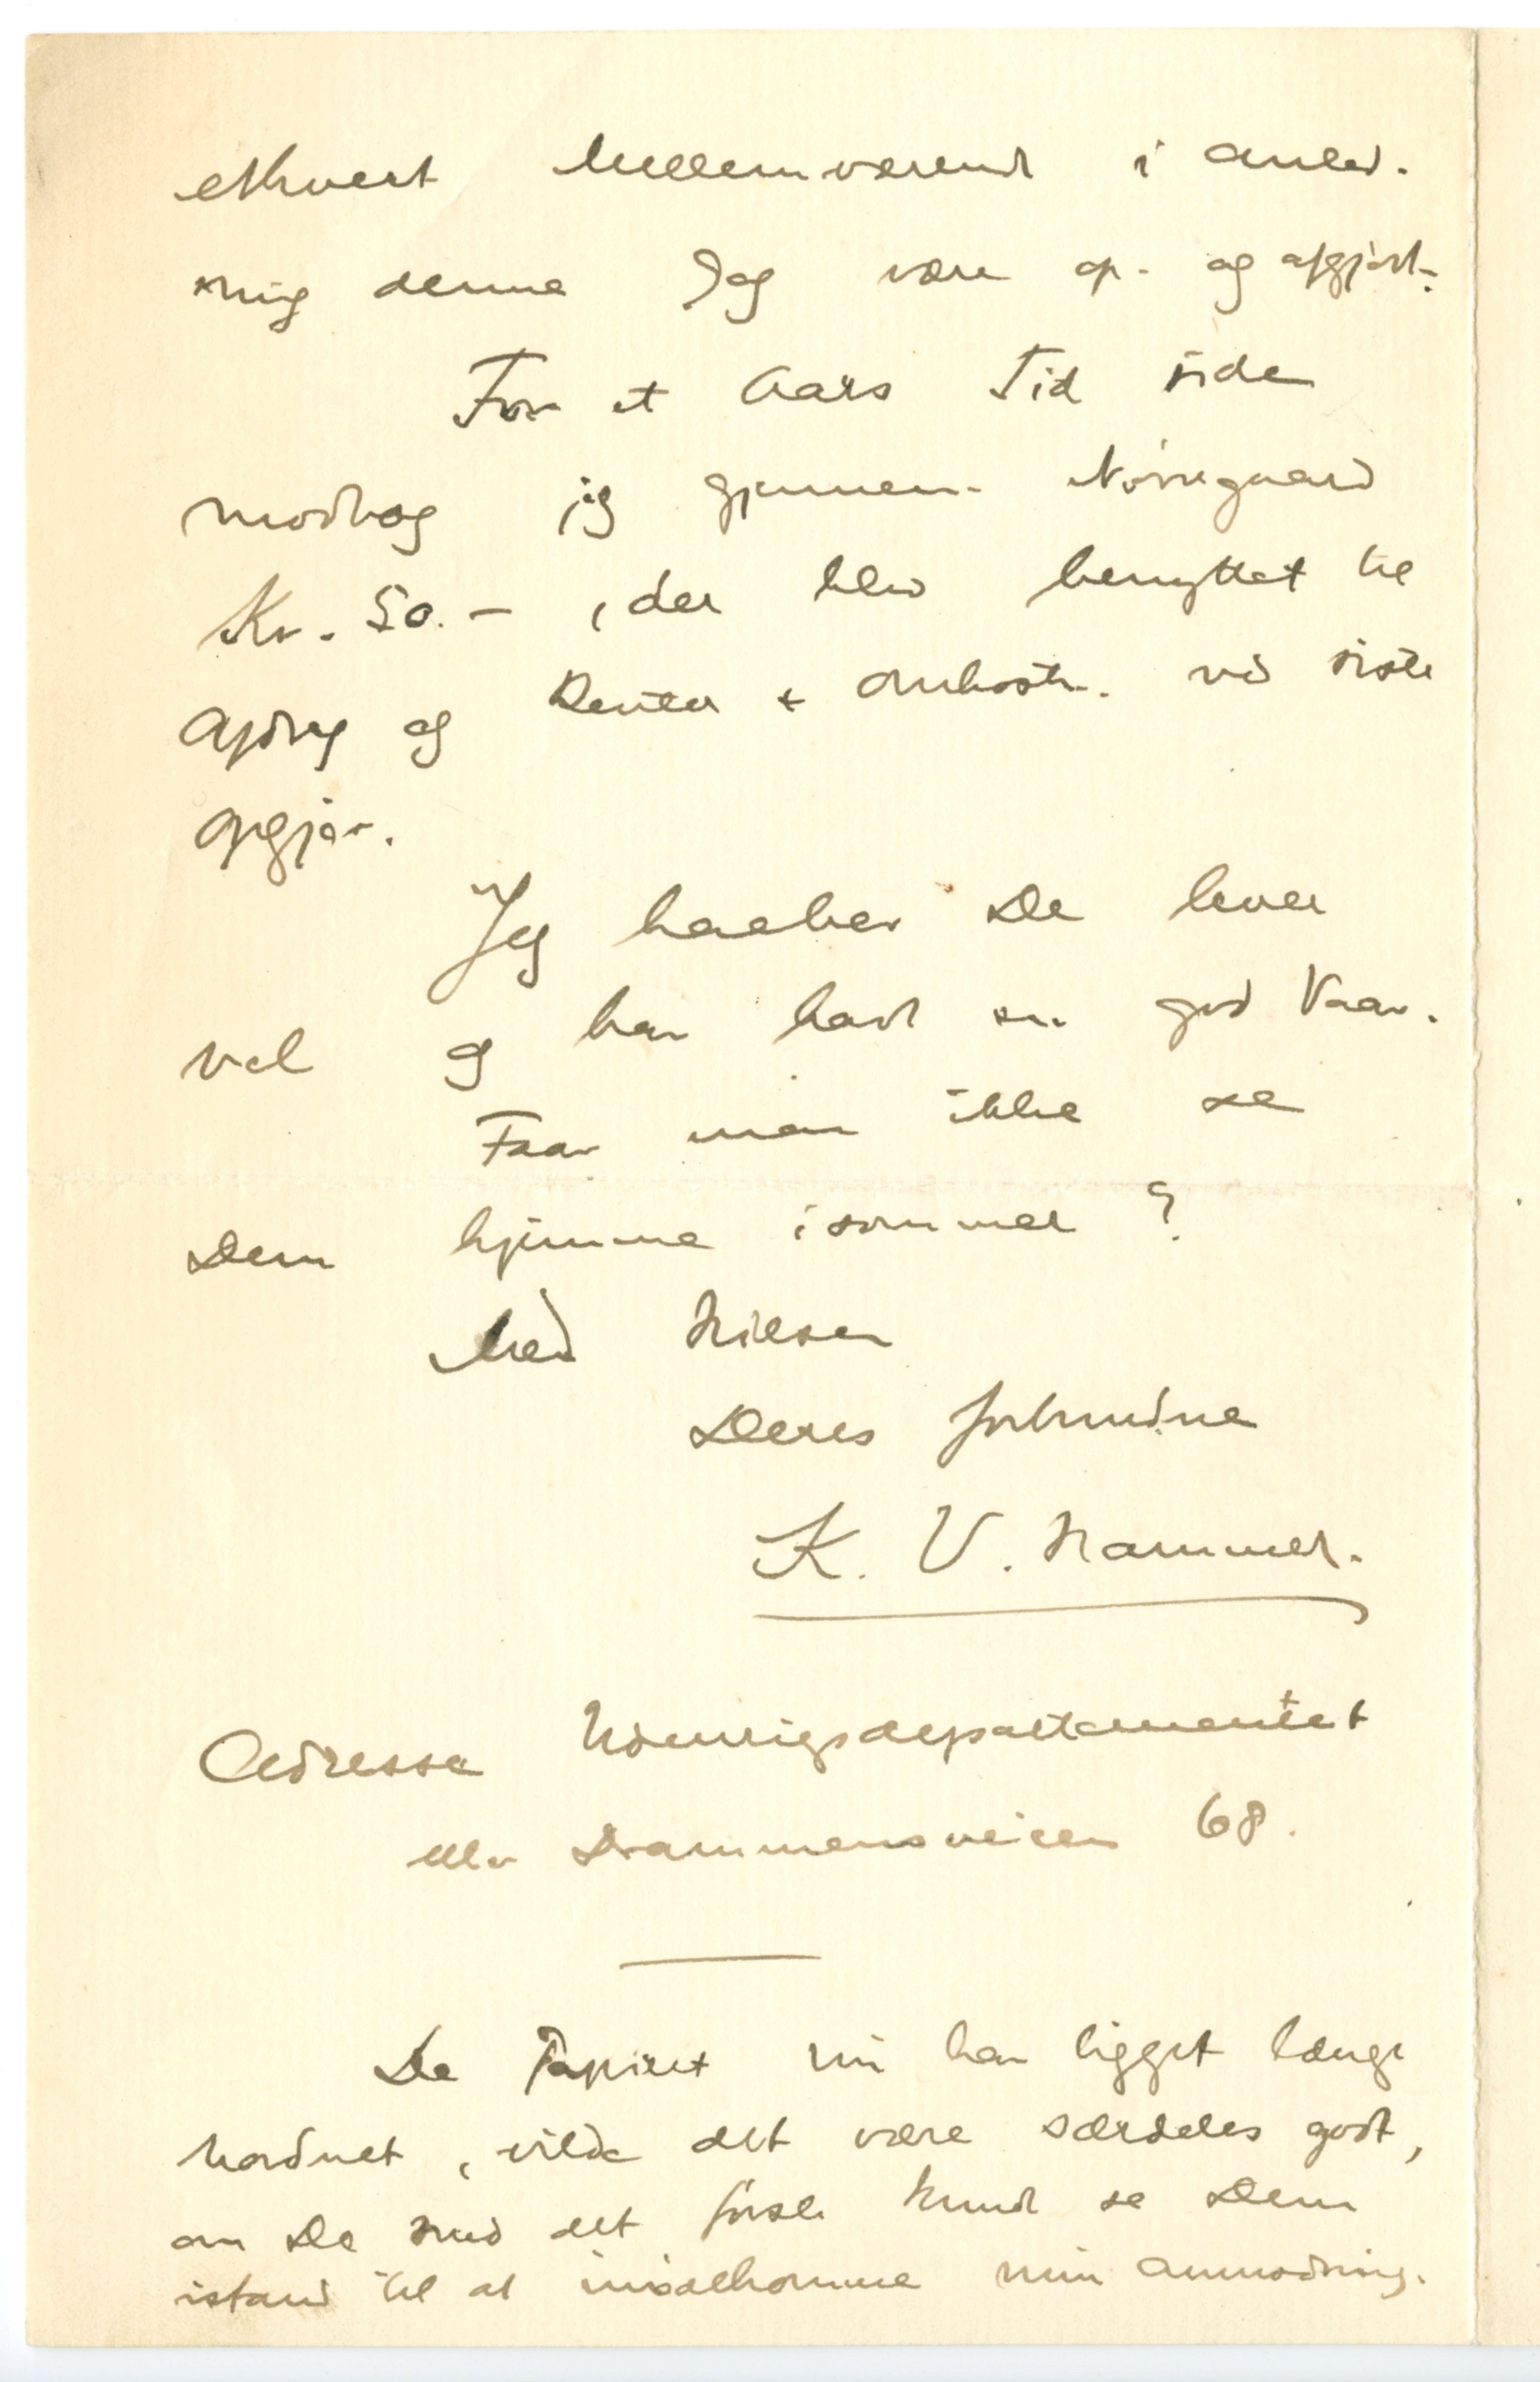 ethvert Mellemværende i anled-
ning denne Sag være op- og afgjort.
For et Aars Tid siden
modtog jeg gjennem Nørregaard
Kr. 50.-, der blev benyttet til
Afdrag og Renter + Omkostn. ved siste
Opgjør.
Jeg haaber De lever
vel og har havt en god Vaar.
Faar man ikke se
Dem hjemme isommer?
Med Hilsen
Deres forbundne
K. V. Hammer.
Adresse Udenrigsdepartementet
eller Drammensveien 68.
Da Papiret nu har ligget længe
hos det, vilde det være særdeles godt,
om De med det første kunde se Dem
istand til at imødekomme min Anmodning.